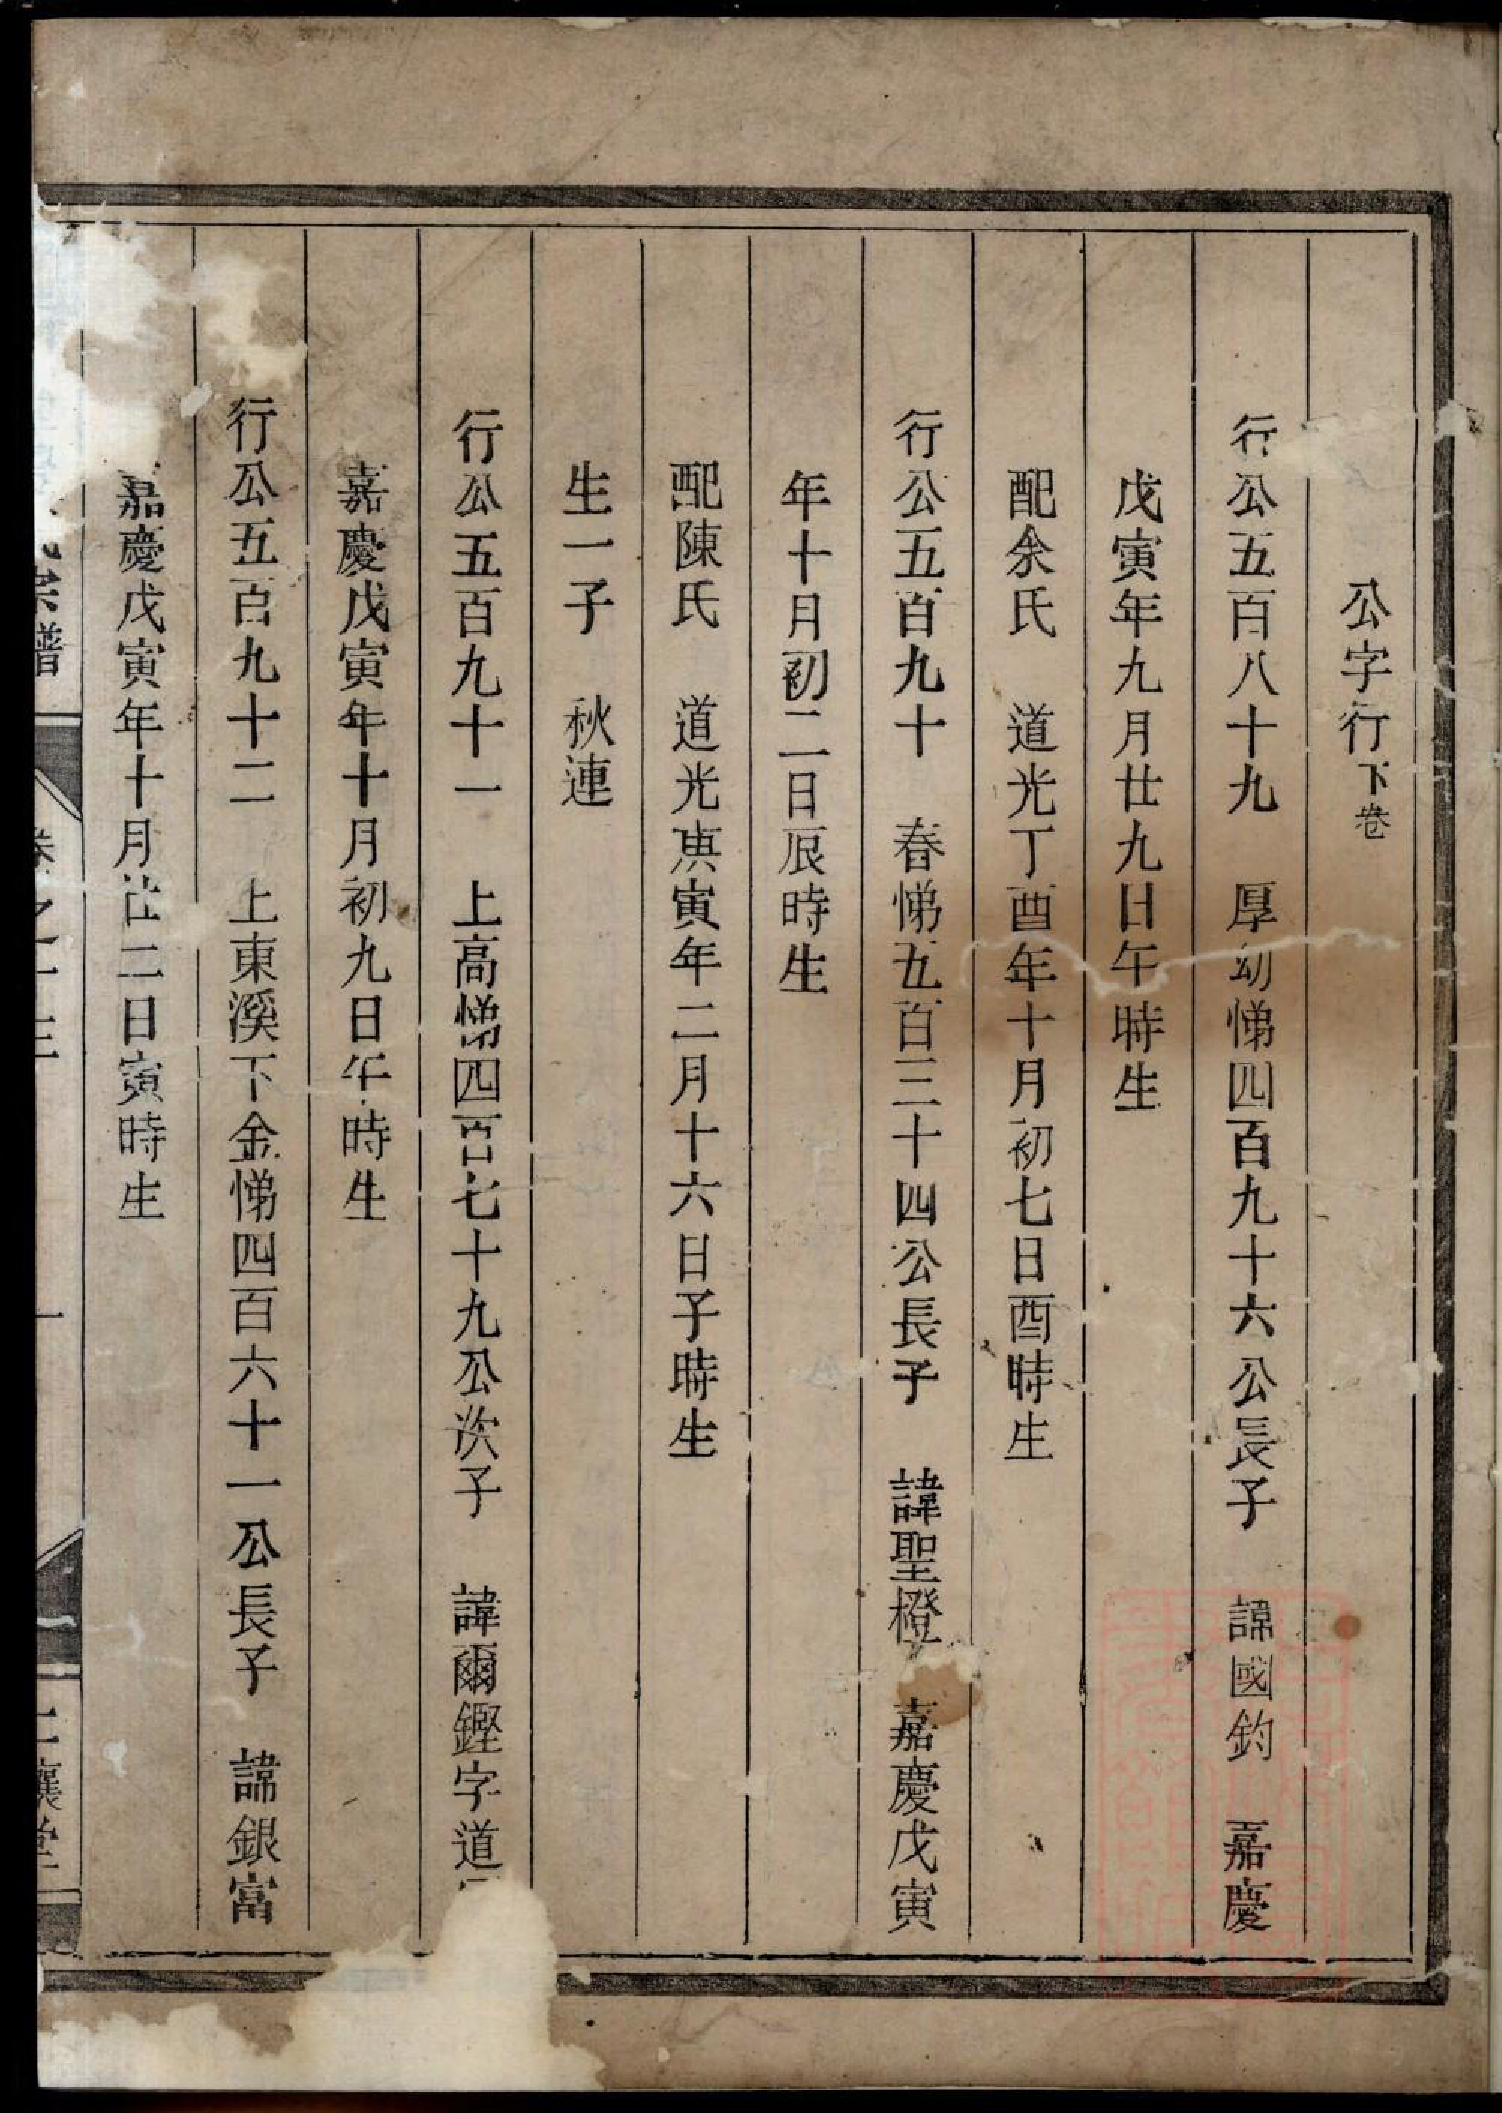 公字行下卷
行公五百八十九 厚幼悌四百九十六公長子 諱國鈞 嘉慶
戊寅年九月廿九日午時生
配余氏 道光丁酉年十月初七日酉時生
行公五百九十 春悌五百三十四公長子 諱聖橙 嘉慶戊寅
年十月初二日辰時生
配陳氏 道光庚寅年二月十六日子時生
生一子 秋連
行公五百九十一 上高悌四百七十九公次子 諱爾鏗字道
嘉慶戊寅年十月初九日午時生
行公五百九十二 上東溪下金悌四百六十一公長子 諱銀富
嘉慶戊寅年十月廿二日寅時生
宗譜 卷之十三 一 堂